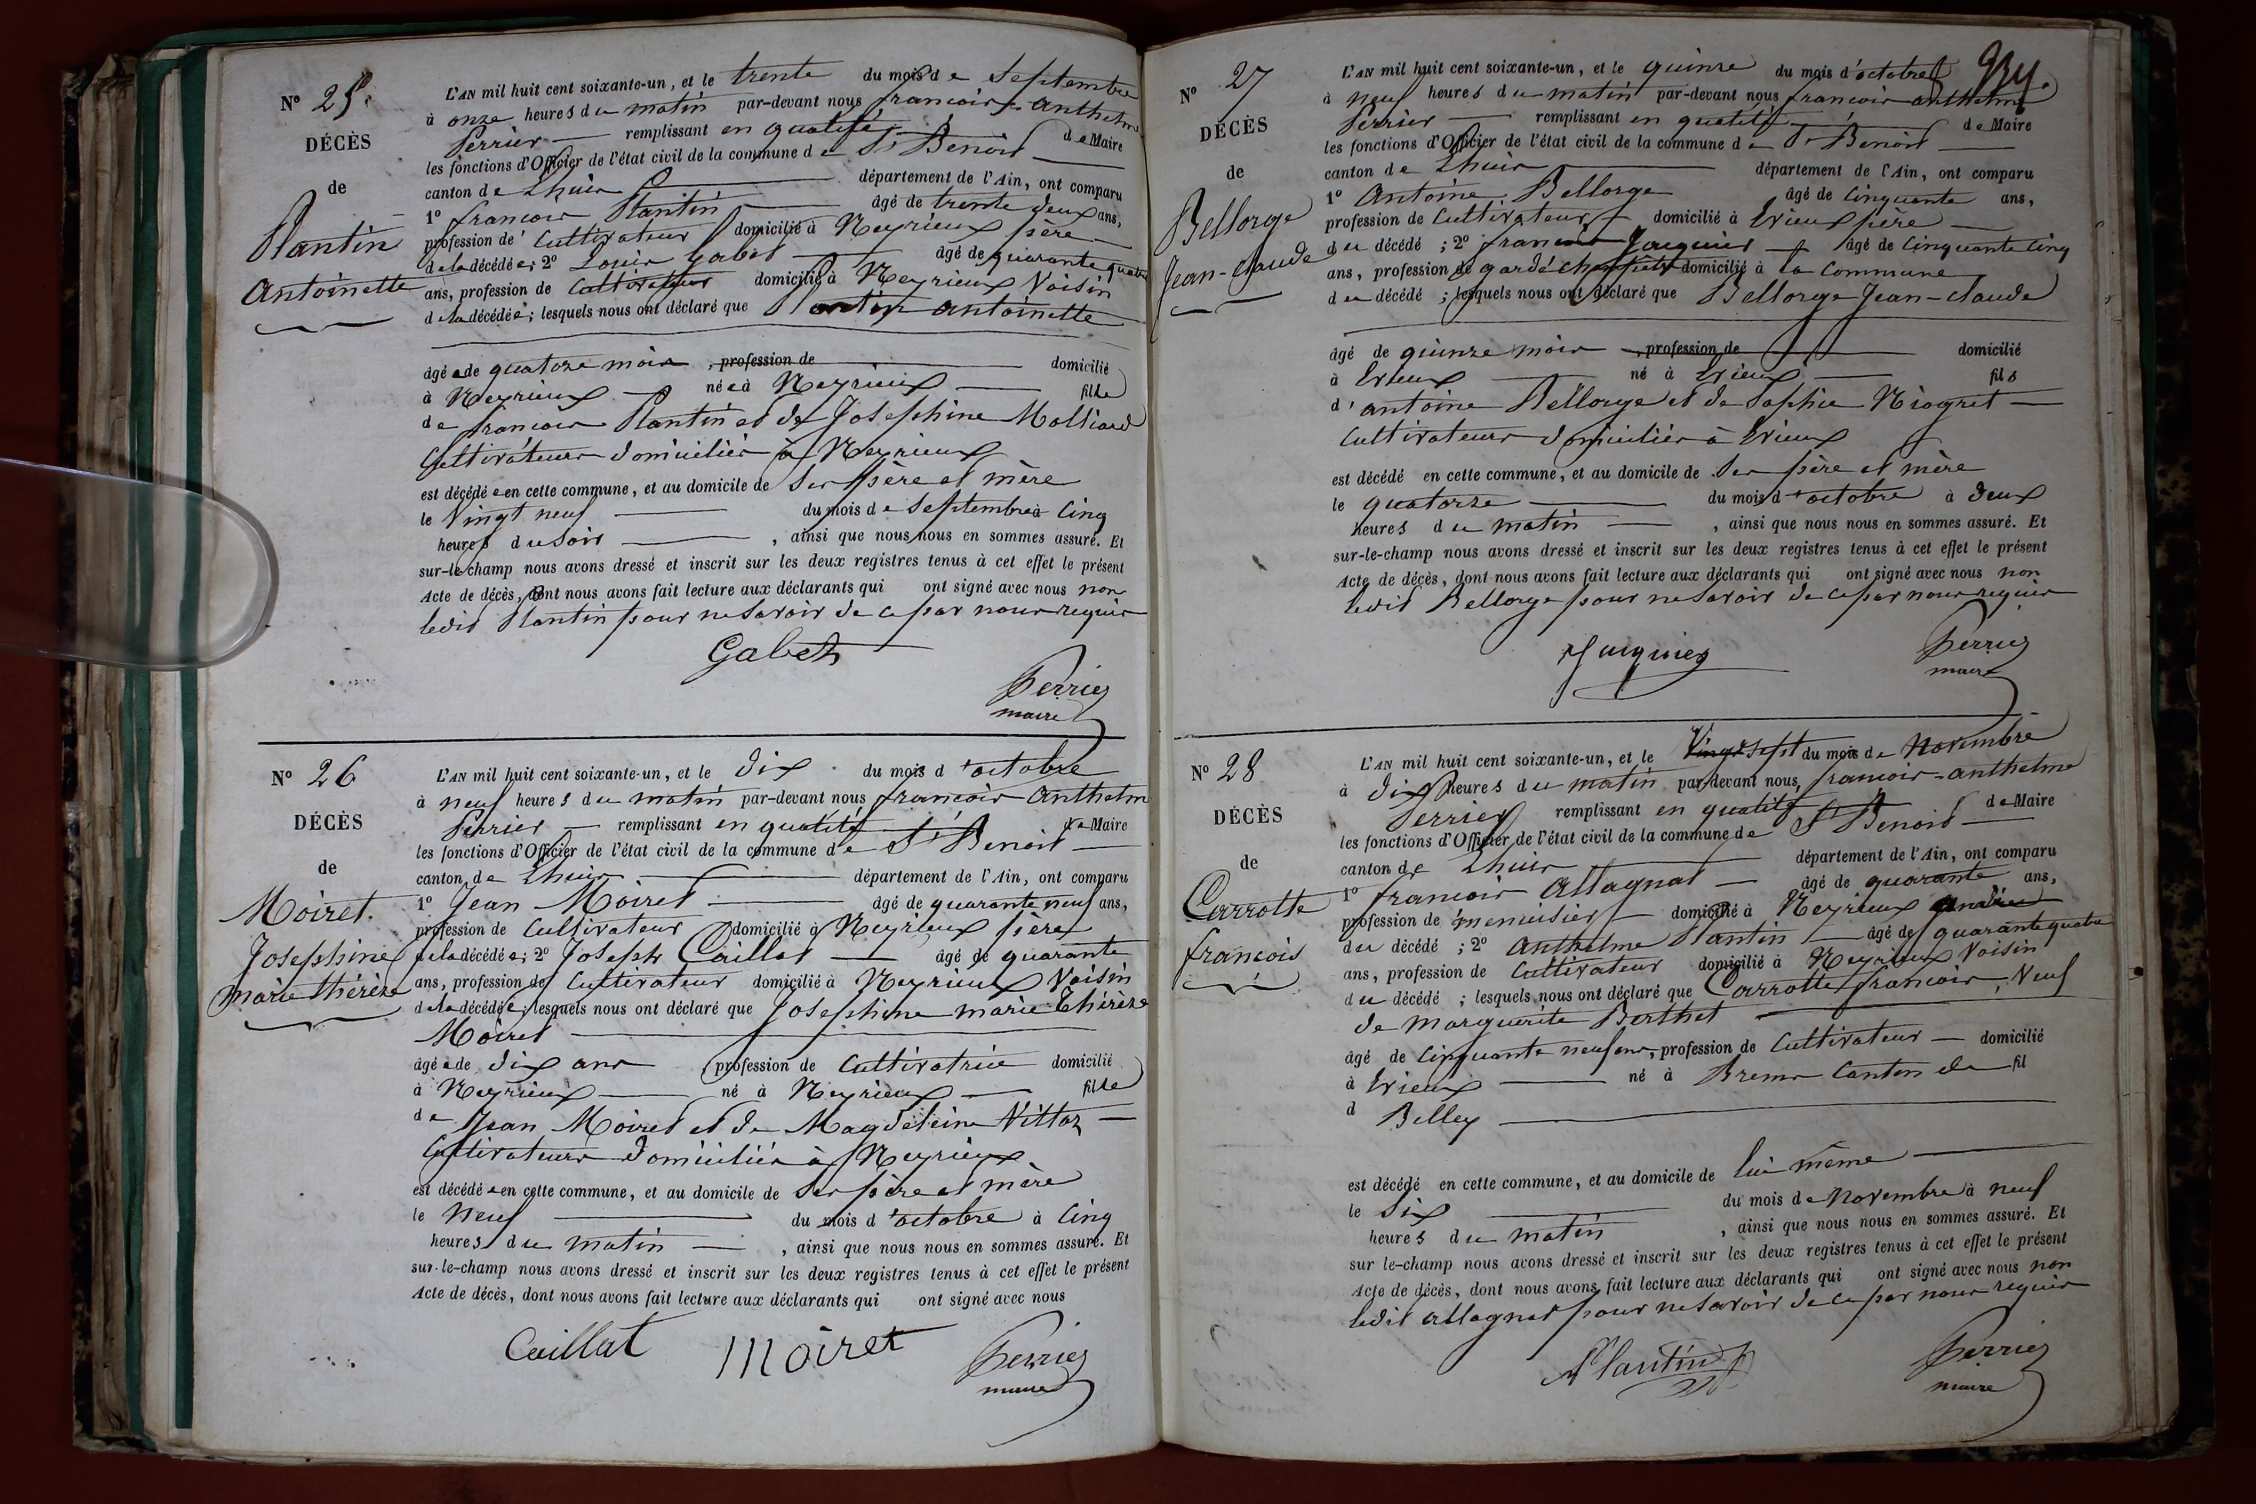 N° 25.
DÉCÈS
de
Plantin
Antoinette
L'AN mil huit cent soixante-un, et le trente du mois de Septembre
à onze heures du matin par-devant nous francois-Anthelme
Perrier remplissant en qualité de Maire
les fonctions d'Officier de l'état civil de la commune de St Benoit
canton de Lhuis département de l'Ain, ont comparu
1° francois Plantin âgé de trente deux ans,
profession de Cultivateur domicilié à Neyrieux père
de la décédée; 2° Louis Gabet âgé de quarante quatre
ans, profession de Cultivateur domicilié à Neyrieux Voisin
de la décédée; lesquels nous ont déclaré que Plantin antoinette
âgée de quatorze mois, profession de domicilié
à Neyrieux née à Neyrieux fille
de francois Plantin et de Josephine Molliard
Cultivateurs domiciliés à Neyrieux
est décédée en cette commune, et au domicile de Ses père et mère
le Vingt neuf du mois de Septembre à Cinq
heures du Soir, ainsi que nous nous en sommes assuré. Et
sur-le-champ nous avons dressé et inscrit sur les deux registres tenus à cet effet le présent
Acte de décès, dont nous avons fait lecture aux déclarants qui ont signé avec nous non
ledit Plantin pour ne Savoir de ce par nous requis
Gabet
Perrier
maire
N° 26
DÉCÈS
de
Moiret.
Josephine
marie thérèze
L'AN mil huit cent soixante-un, et le dix du mois d'octobre
à neuf heures du matin par-devant nous francois Anthelm
Perrier remplissant en qualité de Maire
les fonctions d'Officier de l'état civil de la commune de St Benoit
canton de Lhuis département de l'Ain, ont comparu
1° Jean Moiret âgé de quarante neuf ans,
profession de Cultivateur domicilié à Neyrieux père
de la décédée; 2° Joseph Caillat âgé de quarante
ans, profession de Cultivateur domicilié à Neyrieux Voisin
de la décédée; lesquels nous ont déclaré que Josephine marie Thérèze
Moiret
âgée de dix ans, profession de Cultivatrice domicilié
à Neyrieux né à Neyrieux fille
de Jean Moiret et de Magdeleine Vittoz
Cultivateurs domiciliés à Neyrieux
est décédée en cette commune, et au domicile de Ses père et mère
le Neuf du mois d'octobre à Cinq
heures du matin, ainsi que nous nous en sommes assuré. Et
sur-le-champ nous avons dressé et inscrit sur les deux registres tenus à cet effet le présent
Acte de décès, dont nous avons fait lecture aux déclarants qui ont signé avec nous
Caillat Moiret Perrier
maire
N° 27
DÉCÈS
de
Bellorge
Jean-Claude
L'AN mil huit cent soixante-un, et le quinze du mois d'octobre
à neuf heures du matin par-devant nous francois anthelme
Perrier remplissant en qualité de Maire
les fonctions d'Officier de l'état civil de la commune de St Benoit
canton de Lhuis département de l'Ain, ont comparu
1° Antoine Bellorge âgé de Cinquante ans,
profession de Cultivateur domicilié à Evieux père
du décédé; 2° francois Juquiner âgé de Cinquante Cinq
ans, profession de garde Champêtre domicilié à la Commune
du décédé; lesquels nous ont déclaré que Bellorge Jean-Claude
âgé de quinze mois, profession de domicilié
à Evieux né à Evieux fils
d'antoine Bellorge et de Sophie Niogret
Cultivateurs domiciliés à Evieux
est décédé en cette commune, et au domicile de Ses père et mère
le quatorze du mois d'octobre à deux
heures du matin, ainsi que nous nous en sommes assuré. Et
sur-le-champ nous avons dressé et inscrit sur les deux registres tenus à cet effet le présent
Acte de décès, dont nous avons fait lecture aux déclarants qui ont signé avec nous non
ledit Bellorge pour ne Savoir de ce par nous requis
Perrier
maire
N° 28
DÉCÈS
de
Carrotte
francois
L'AN mil huit cent soixante-un, et le Vingt Sept du mois de Novembre
à dix heures du matin par-devant nous, francois-anthelme
Perrier remplissant en qualité de Maire
les fonctions d'Officier de l'état civil de la commune de St Benoit
canton de Lhuis département de l'Ain, ont comparu
1° francois Allagnat âgé de quarante ans,
profession de menuisier domicilié à Neyrieux
du décédé; 2° Anthelme Plantin âgé de quarante quatre
ans, profession de Cultivateur domicilié à Neyrieux Voisin
du décédé; lesquels nous ont déclaré que Carrotte francois, Veuf
de Marguerite Berthet
âgé de Cinquante neuf ans, profession de Cultivateur domicilié
à Evieux né à Brens Canton de fil
d Belley
est décédé en cette commune, et au domicile de lui même
le Six du mois de Novembre à neuf
heures du matin, ainsi que nous nous en sommes assuré. Et
sur le-champ nous avons dressé et inscrit sur les deux registres tenus à cet effet le présent
Acte de décès, dont nous avons fait lecture aux déclarants qui ont signé avec nous non
ledit allagnat pour ne Savoir de ce par nous requis
Plantin
Perrier
maire